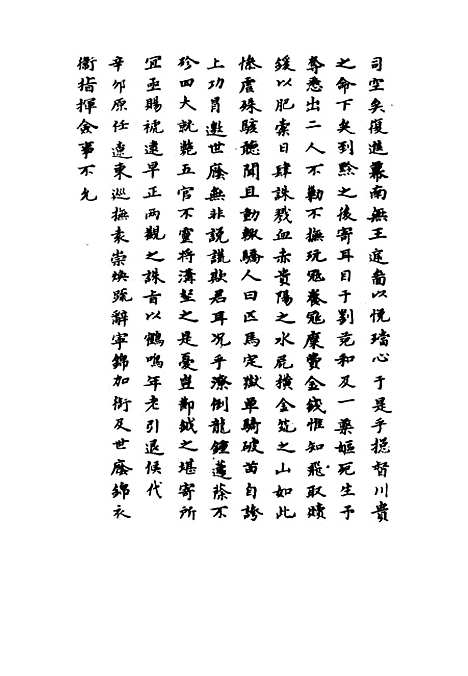 司空矣復進最南無王寔畨以悅璫心于是乎摠督川貴
之命下矣到黔之後寄耳目于劉范和及一藥嫗死生予
奪悉出二人不勦不撫玩冦養冦糜費金錢惟知飛取贖
鍰以肥索日肆誅戮血赤貴陽之水屍橫金筑之山如此
慘虐殊駭聽聞且動輙驕人曰匹馬定獄單騎破苗自誇
上功冐邀世廕無非説謊欺君耳况乎潦倒龍鍾蓬蒢不
珍四大就斃五官不靈將溝壑之是憂豈鄣鉞之堪寄所
宜亟賜褫逮早正兩觀之誅旨以鶴鳴年老引退候代
辛夘原任遼東巡撫袁崇煥䟽辭寧錦加銜及世廕錦衣
衞指揮僉事不允